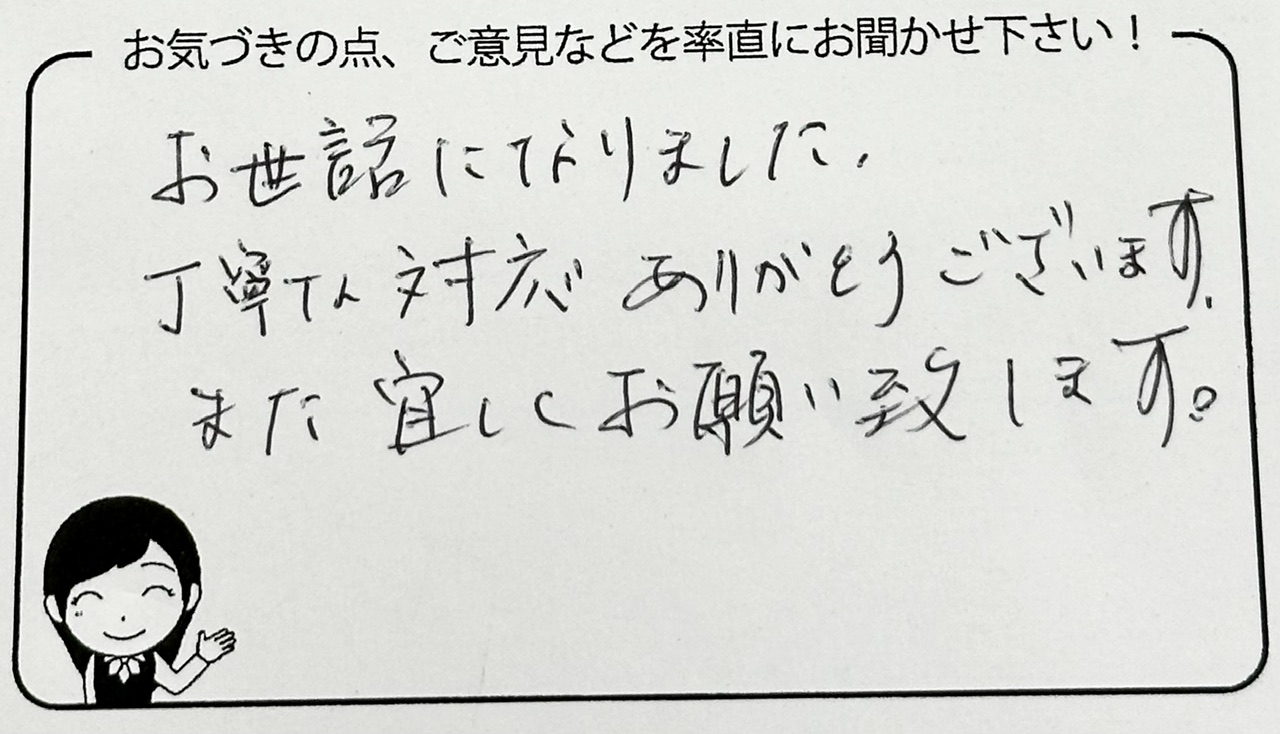 お気づきの点、ご意見などを率直にお聞かせ下さい！
お世話になりました。
丁寧な対応ありがとうございます。
また宜しくお願い致します。